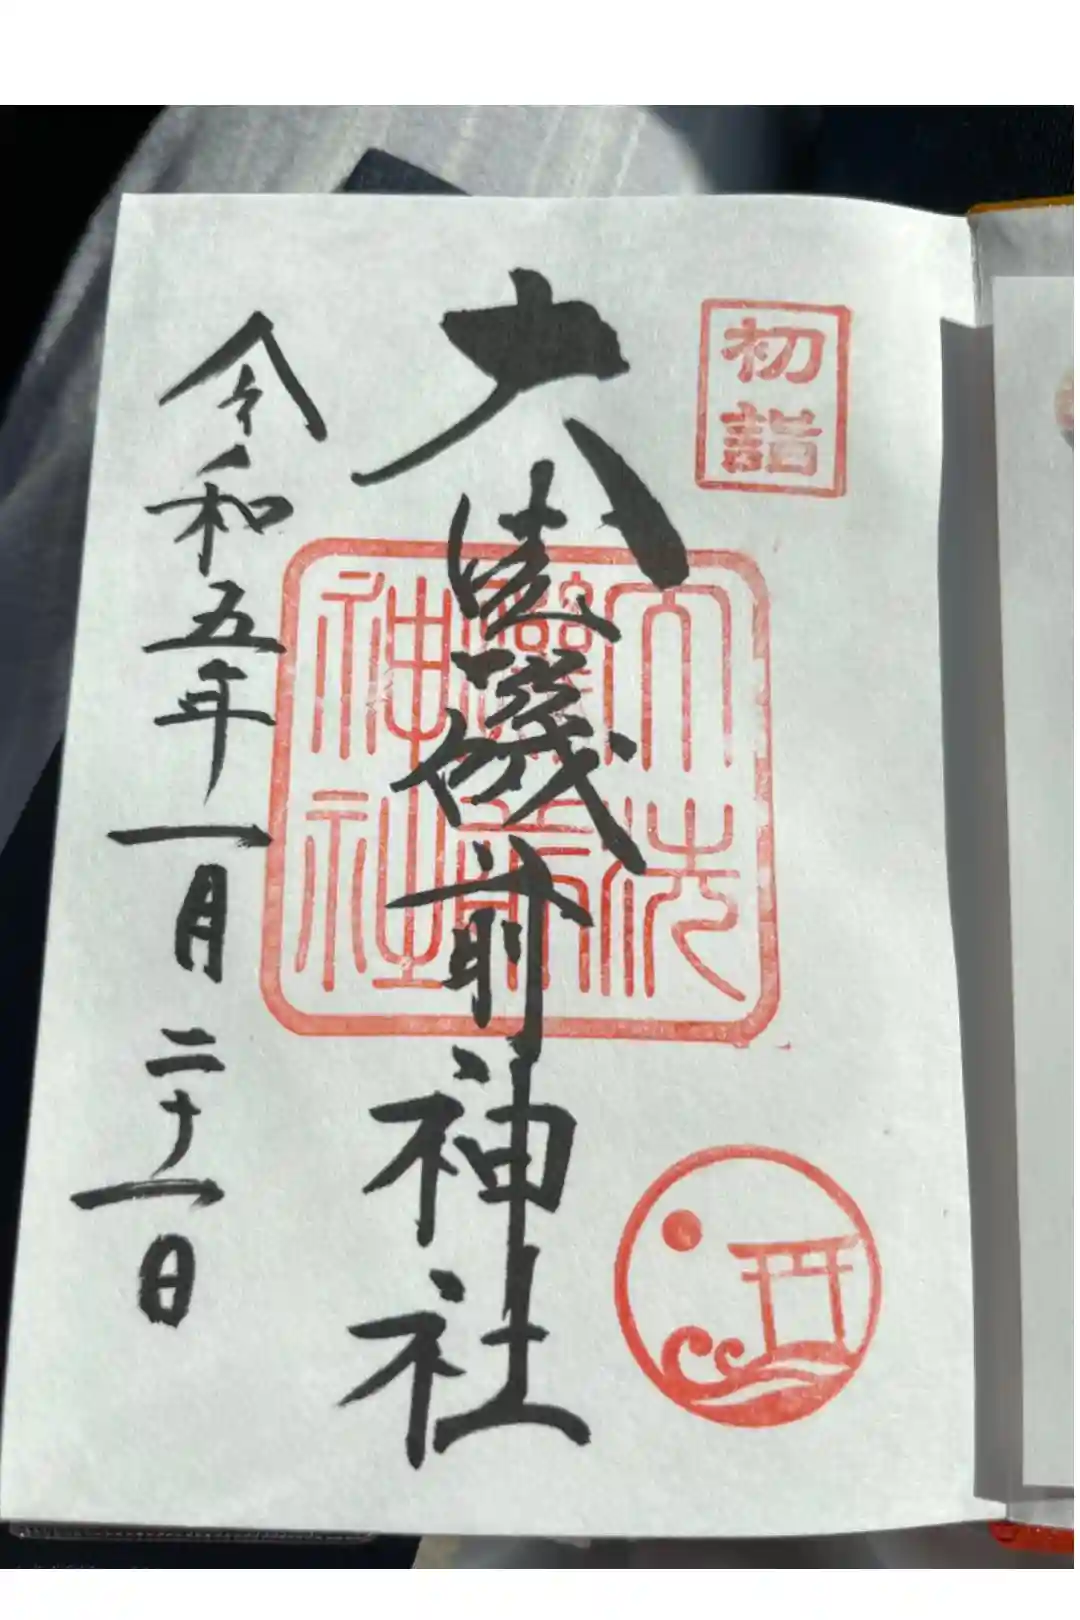 初詣
大洗磯前神社
大洗磯前神社
令和五年一月二十一日